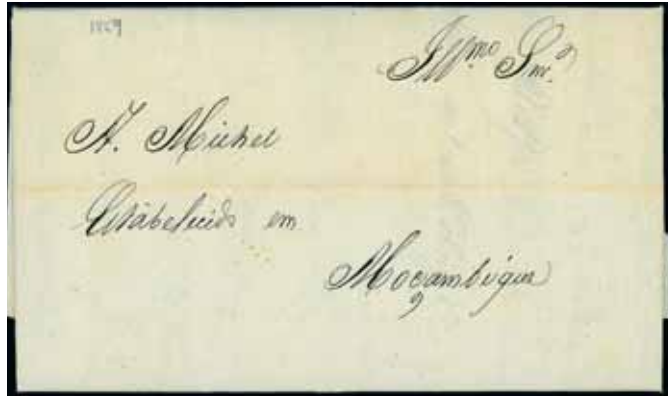 1869
Illmo Snr.
A. Michel
Estabelecido em
Moçambique